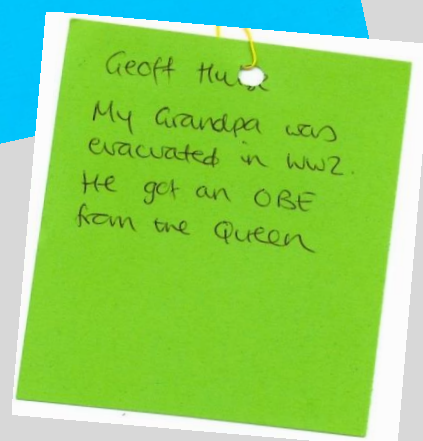 Geoff
My Grandpa was
evacuated in WW2.
He got an OBE
from the Queen